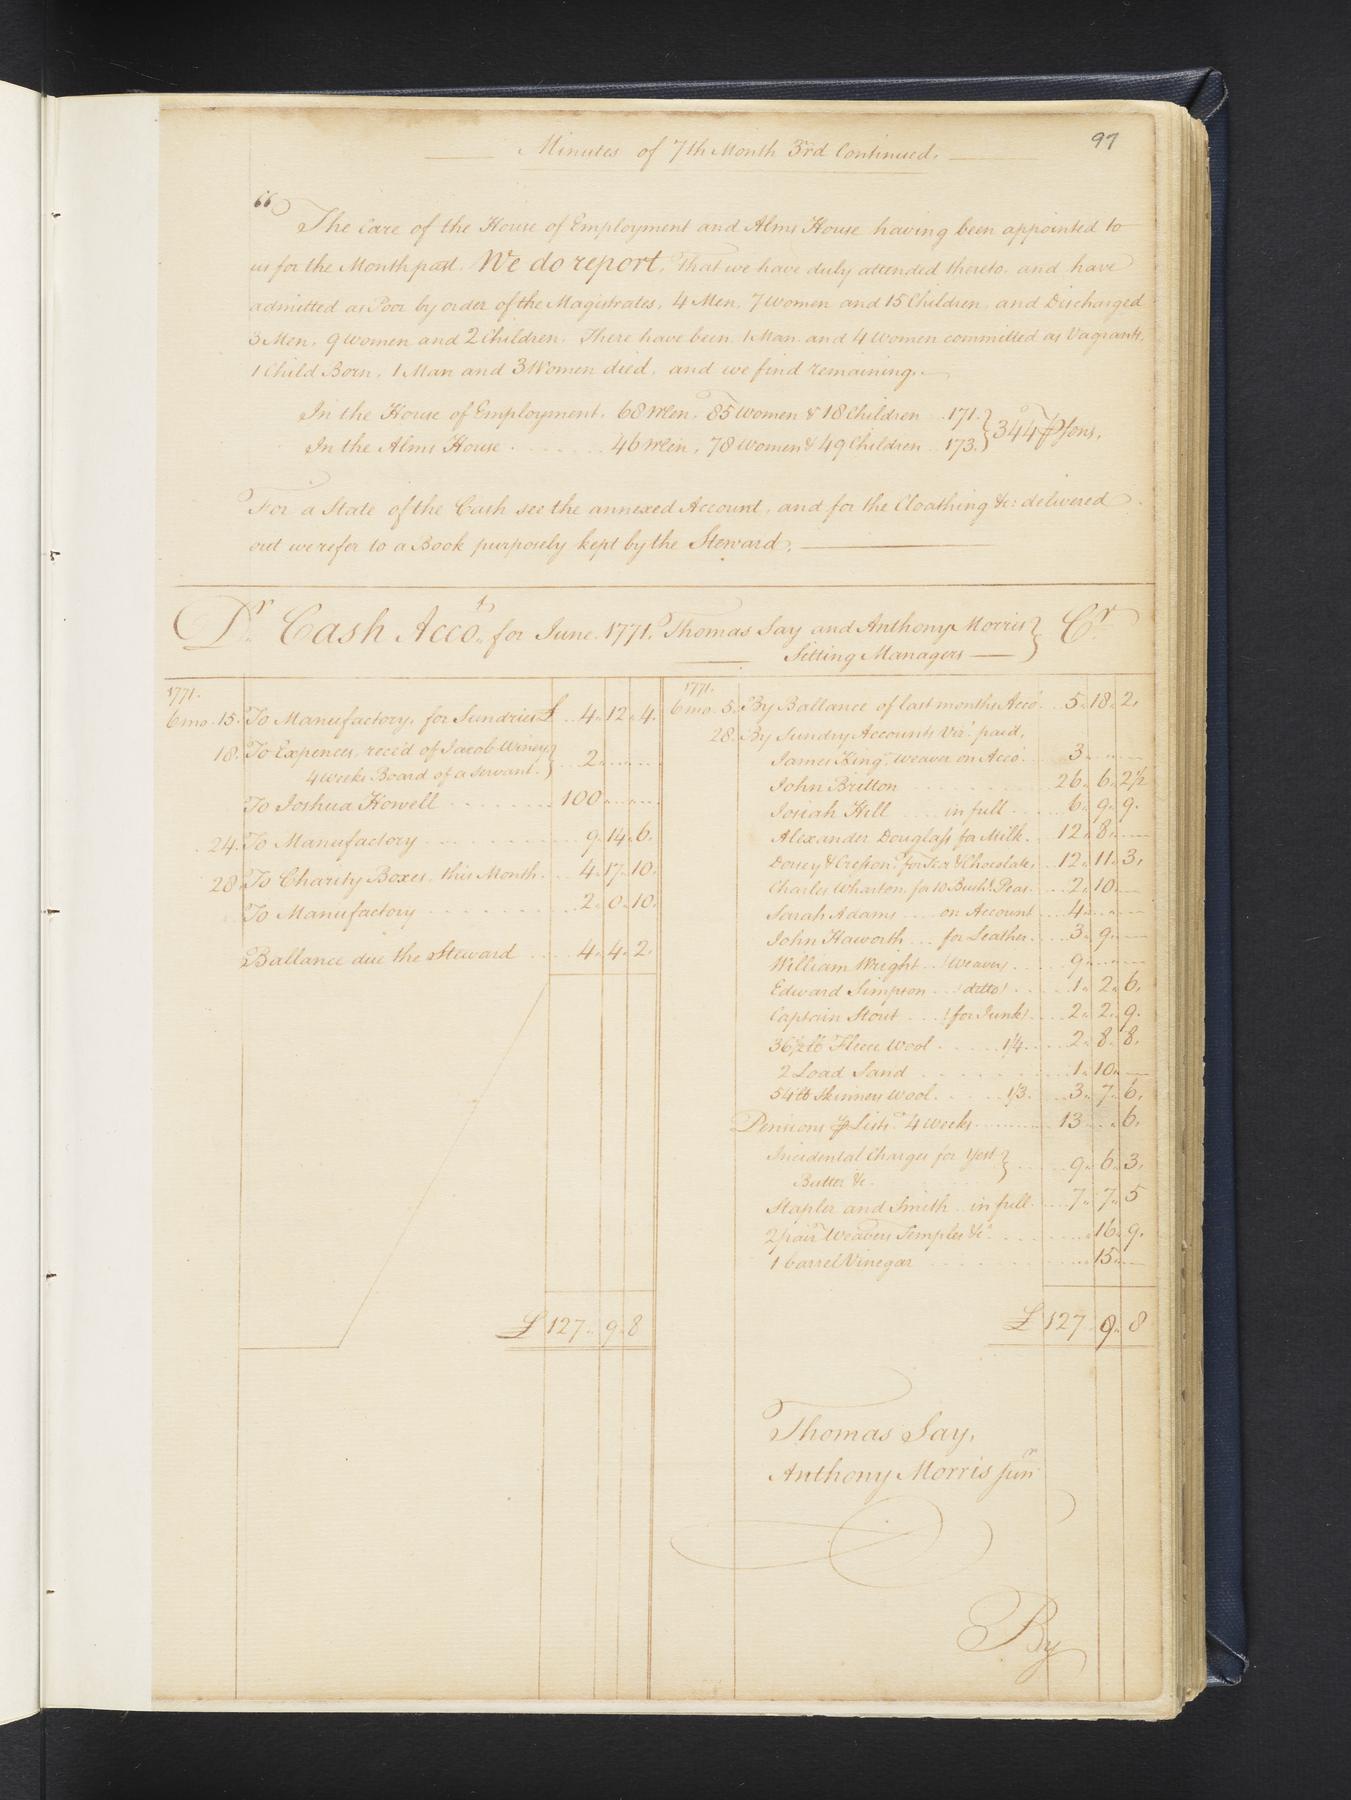 97
Minutes of 7th Month 3rd Continued.
" The Care of the House of Employment and Alms House having been appointed to
us for the Month past. We do report, That we have duly attended thereto, and have
admitted as Poor by order of the Magistrates, 4 Men, 7 Women and 15 Children, and Discharged
3 Men, 9 Women and 2 Children. There have been 1 Man and 4 Women committed as Vagrants,
1 Child Born, 1 Man and 3 Women died, and we find remaining,
In the House of Employment, 68 Men, 85 Women & 18 Children .. 171. } 344 Psons,
In the Alms House . . . . . . . 46 Men, 78 Women & 49 Children .. 173. }
For a State of the Cash see the annexed Account, and for the Cloathing &c: delivered
out we refer to a Book purposely kept by the Steward.
Dr. Cash Accot. for June 1771. Thomas Say and Anthony Morris } Cr.
Sitting Managers
1771.
6mo. 15. To Manufactory, for Sundries £ 4. 12. 4.
18. To Expences, recd of Jacob Winey }
4 Weeks Board of a Servant. } 2.
To Joshua Howell 100
24. To Manufactory 9. 14. 6.
28. To Charity Boxes, this Month. 4. 17. 10.
To Manufactory 2. 0. 10.
Ballance due the Steward 4. 4. 2.
£ 127. 9. 8
1771.
6mo. 5. By Ballance of last months Acco. 5. 18. 2.
28. By Sundry Accounts Viz. paid,
James King, Weaver on Acco. 3
John Britton 26. 6. 2½
Josiah Hill in full 6. 9. 9.
Alexander Douglass for Milk. 12. 8.
Dorsey & Cresson for Tea & Chocolate, 12. 11. 3.
Charles Wharton, for 10 Bushs. Peas 2. 10
Sarah Adams on Account 4.
John Haworth for Leather. 3. 9.
William Wright (Weaver) 9.
Edward Simpson (ditto) 1. 2. 6.
Captain Stout (for Junk) 2. 2. 9.
36½ lb Fleece Wool 1/4 2. 8. 8.
2 Load Sand 1. 10.
54 lb Skinners Wool 1/3. 3. 7. 6.
Pensions P List 4 weeks 13 6.
Incidental Charges for Yest }
Butter &c. } 9. 6. 3.
Stapler and Smith in full 7. 7. 5
2 pair Weavers Temples &c. 16. 9.
1 barrel Vinegar 15.
£ 127 9. 8
Thomas Say,
Anthony Morris junr
By